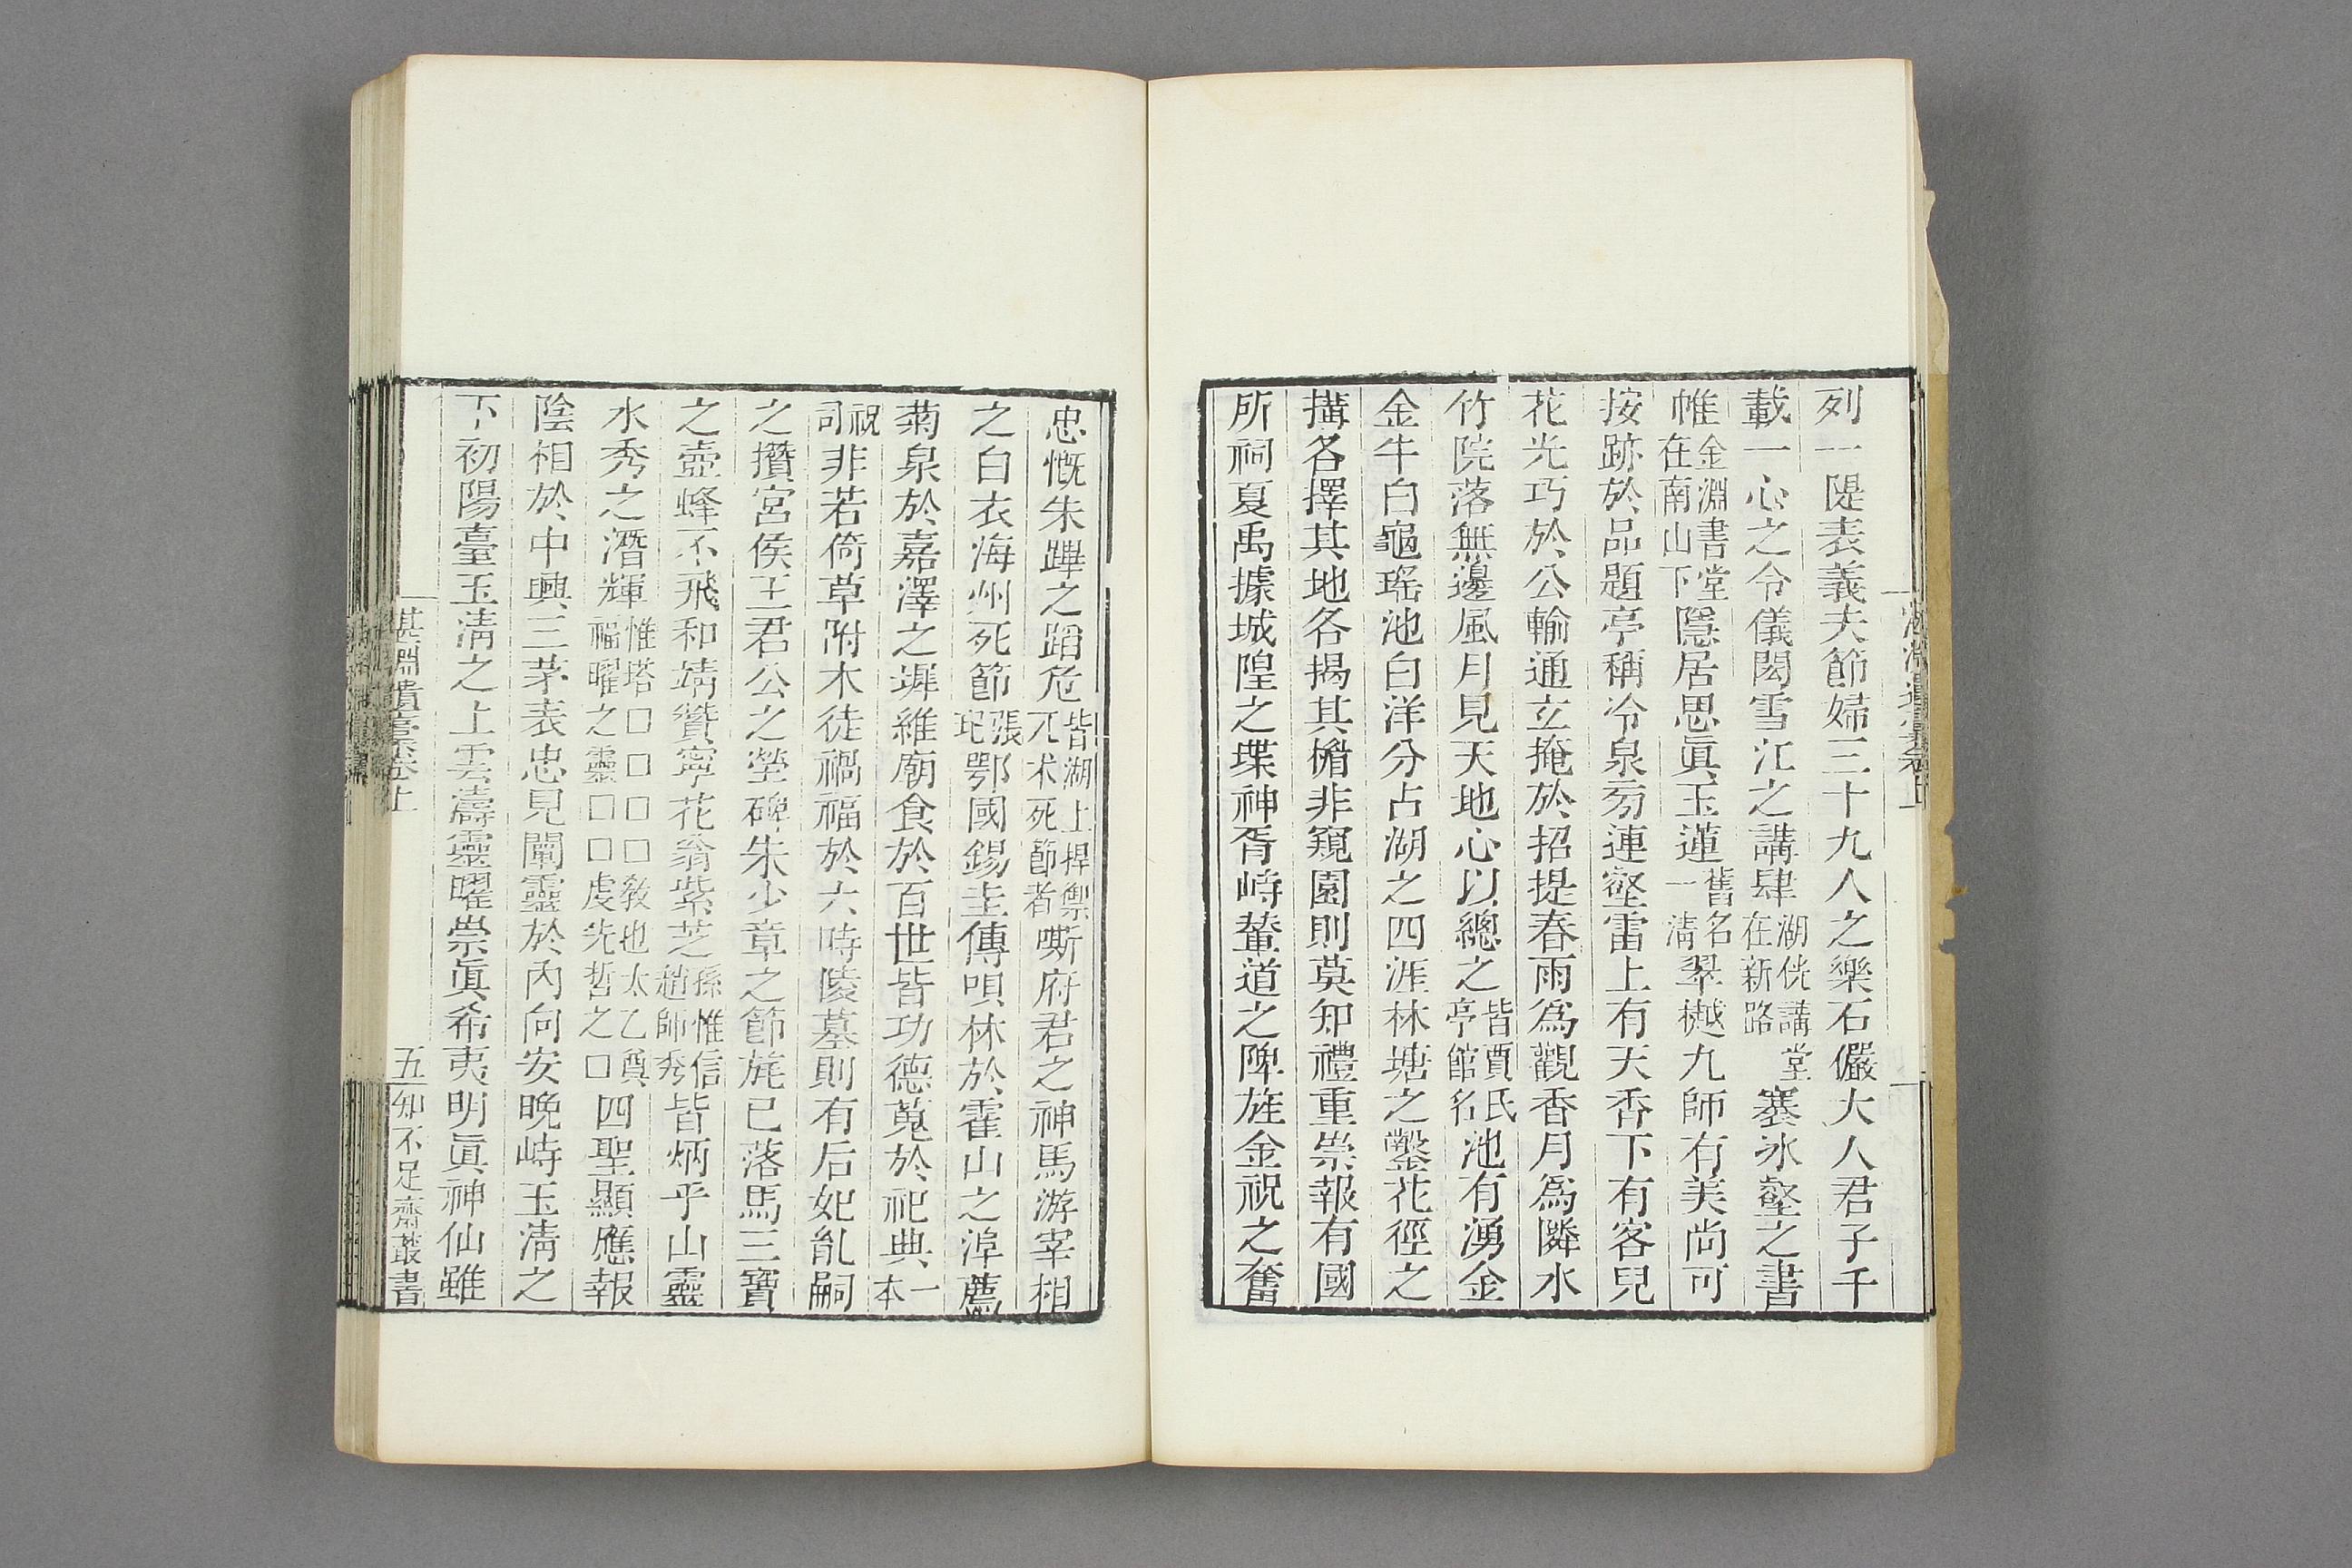 列一隄表義夫節婦三十九人之樂石儼大人君子千
載一心之令儀閎雪江之講肆湖侊講堂在新路蹇氷壑之書
帷金淵書堂在南山下隱居思眞玉蓮舊名一淸翠樾九師有美尚可
按跡於品題亭稱冷泉㫄連壑雷上有天香下有客兒
花光巧於公輸通玄掩於招提春雨爲觀香月爲隣水
竹院落無邊風月見天地心以總之皆賈氏亭館名池有湧金
金牛白龜瑤池白洋分占湖之四涯林塘之鑿花徑之
搆各擇其地各揭其楣非窺園則莫知禮重崇報有國
所祠夏禹據城隍之堞神胥峙輦道之陴旌金祝之奮
忠慨朱蹕之蹈危皆湖上捍禦兀朮死節者嘶府君之神馬游宰相
之白衣海州死節張玘鄂國錫圭傳唄林於霍山之漳薦
菊泉於嘉澤之墀維廟食於百世皆功德蒐於祀典一本
祝司非若倚草附木徒禍福於六時陵墓則有后妃胤嗣
之攢宮侯王君公之塋碑朱少章之節旄已落馬三寶
之壺蜂不飛和靖贊寧花翁紫芝孫惟信趙師秀皆炳乎山靈
水秀之潛輝惟塔□□□□敎也太乙奠福曜之靈□□虔先哲之□四聖顯應報
陰相於中興三茅表忠見闡靈於內向安晚峙玉淸之
下初陽臺玉淸之上雲濤靈曜崇眞希夷明眞神仙雖
湛淵遺稾卷上
五
知不足齋叢書